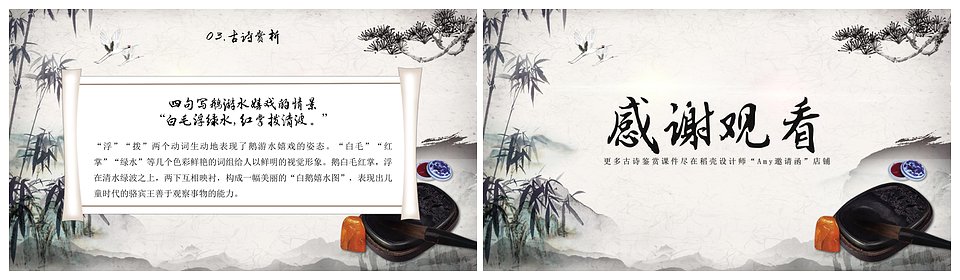 03.古诗赏析
四句写鹅游水嬉戏的情景
“白毛浮绿水,红掌拨清波。”
“浮”“拨”两个动词生动地表现了鹅游水嬉戏的姿态。“白毛”“红
掌”“绿水”等几个色彩鲜艳的词组给人以鲜明的视觉形象。鹅白毛红掌,浮
在清水绿波之上,两下互相映衬,构成一幅美丽的“白鹅嬉水图”,表现出儿
童时代的骆宾王善于观察事物的能力。
感谢观看
更多古诗鉴赏课件尽在稻壳设计师“Amy邀请函”店铺